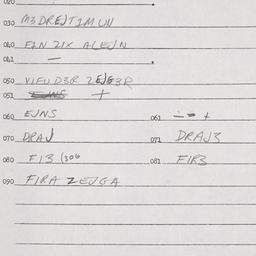 020
030 M3DREJT1MUN
040 FIN ZIX ALEJN
041 —
050 VIEU D3R ZEJG3R
051 EJNS +
060 EJNS 061 +
070 DRAJ 071 DRAJ3
080 FIB (306 081 FIR3
090 FIRA ZEJGA